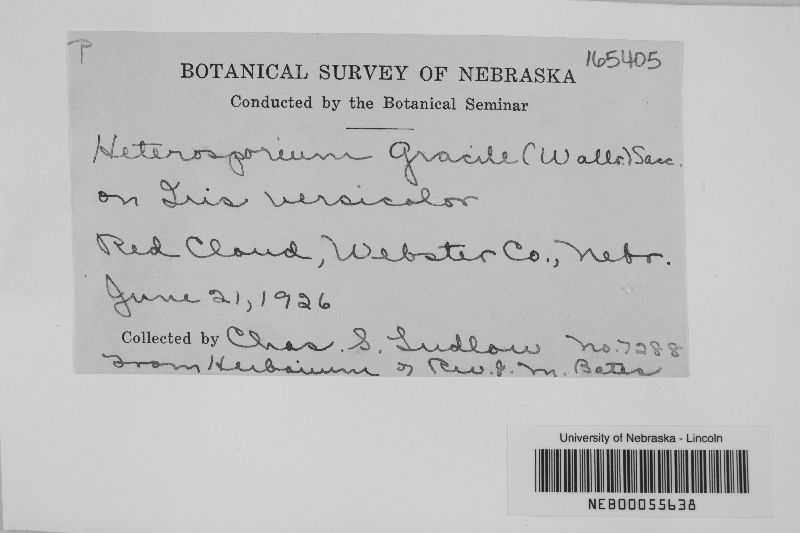 P
165405
BOTANICAL SURVEY OF NEBRASKA
Conducted by the Botanical Seminar
Heterosporium gracile (Wallr.) Sacc.
on Iris versicolor
Red Cloud, Webster Co., Nebr.
June 21, 1926
Collected by Chas. S. Ludlow No. 7288
From Herbarium of Rev. J. M. Bates
University of Nebraska - Lincoln
NEB00055638